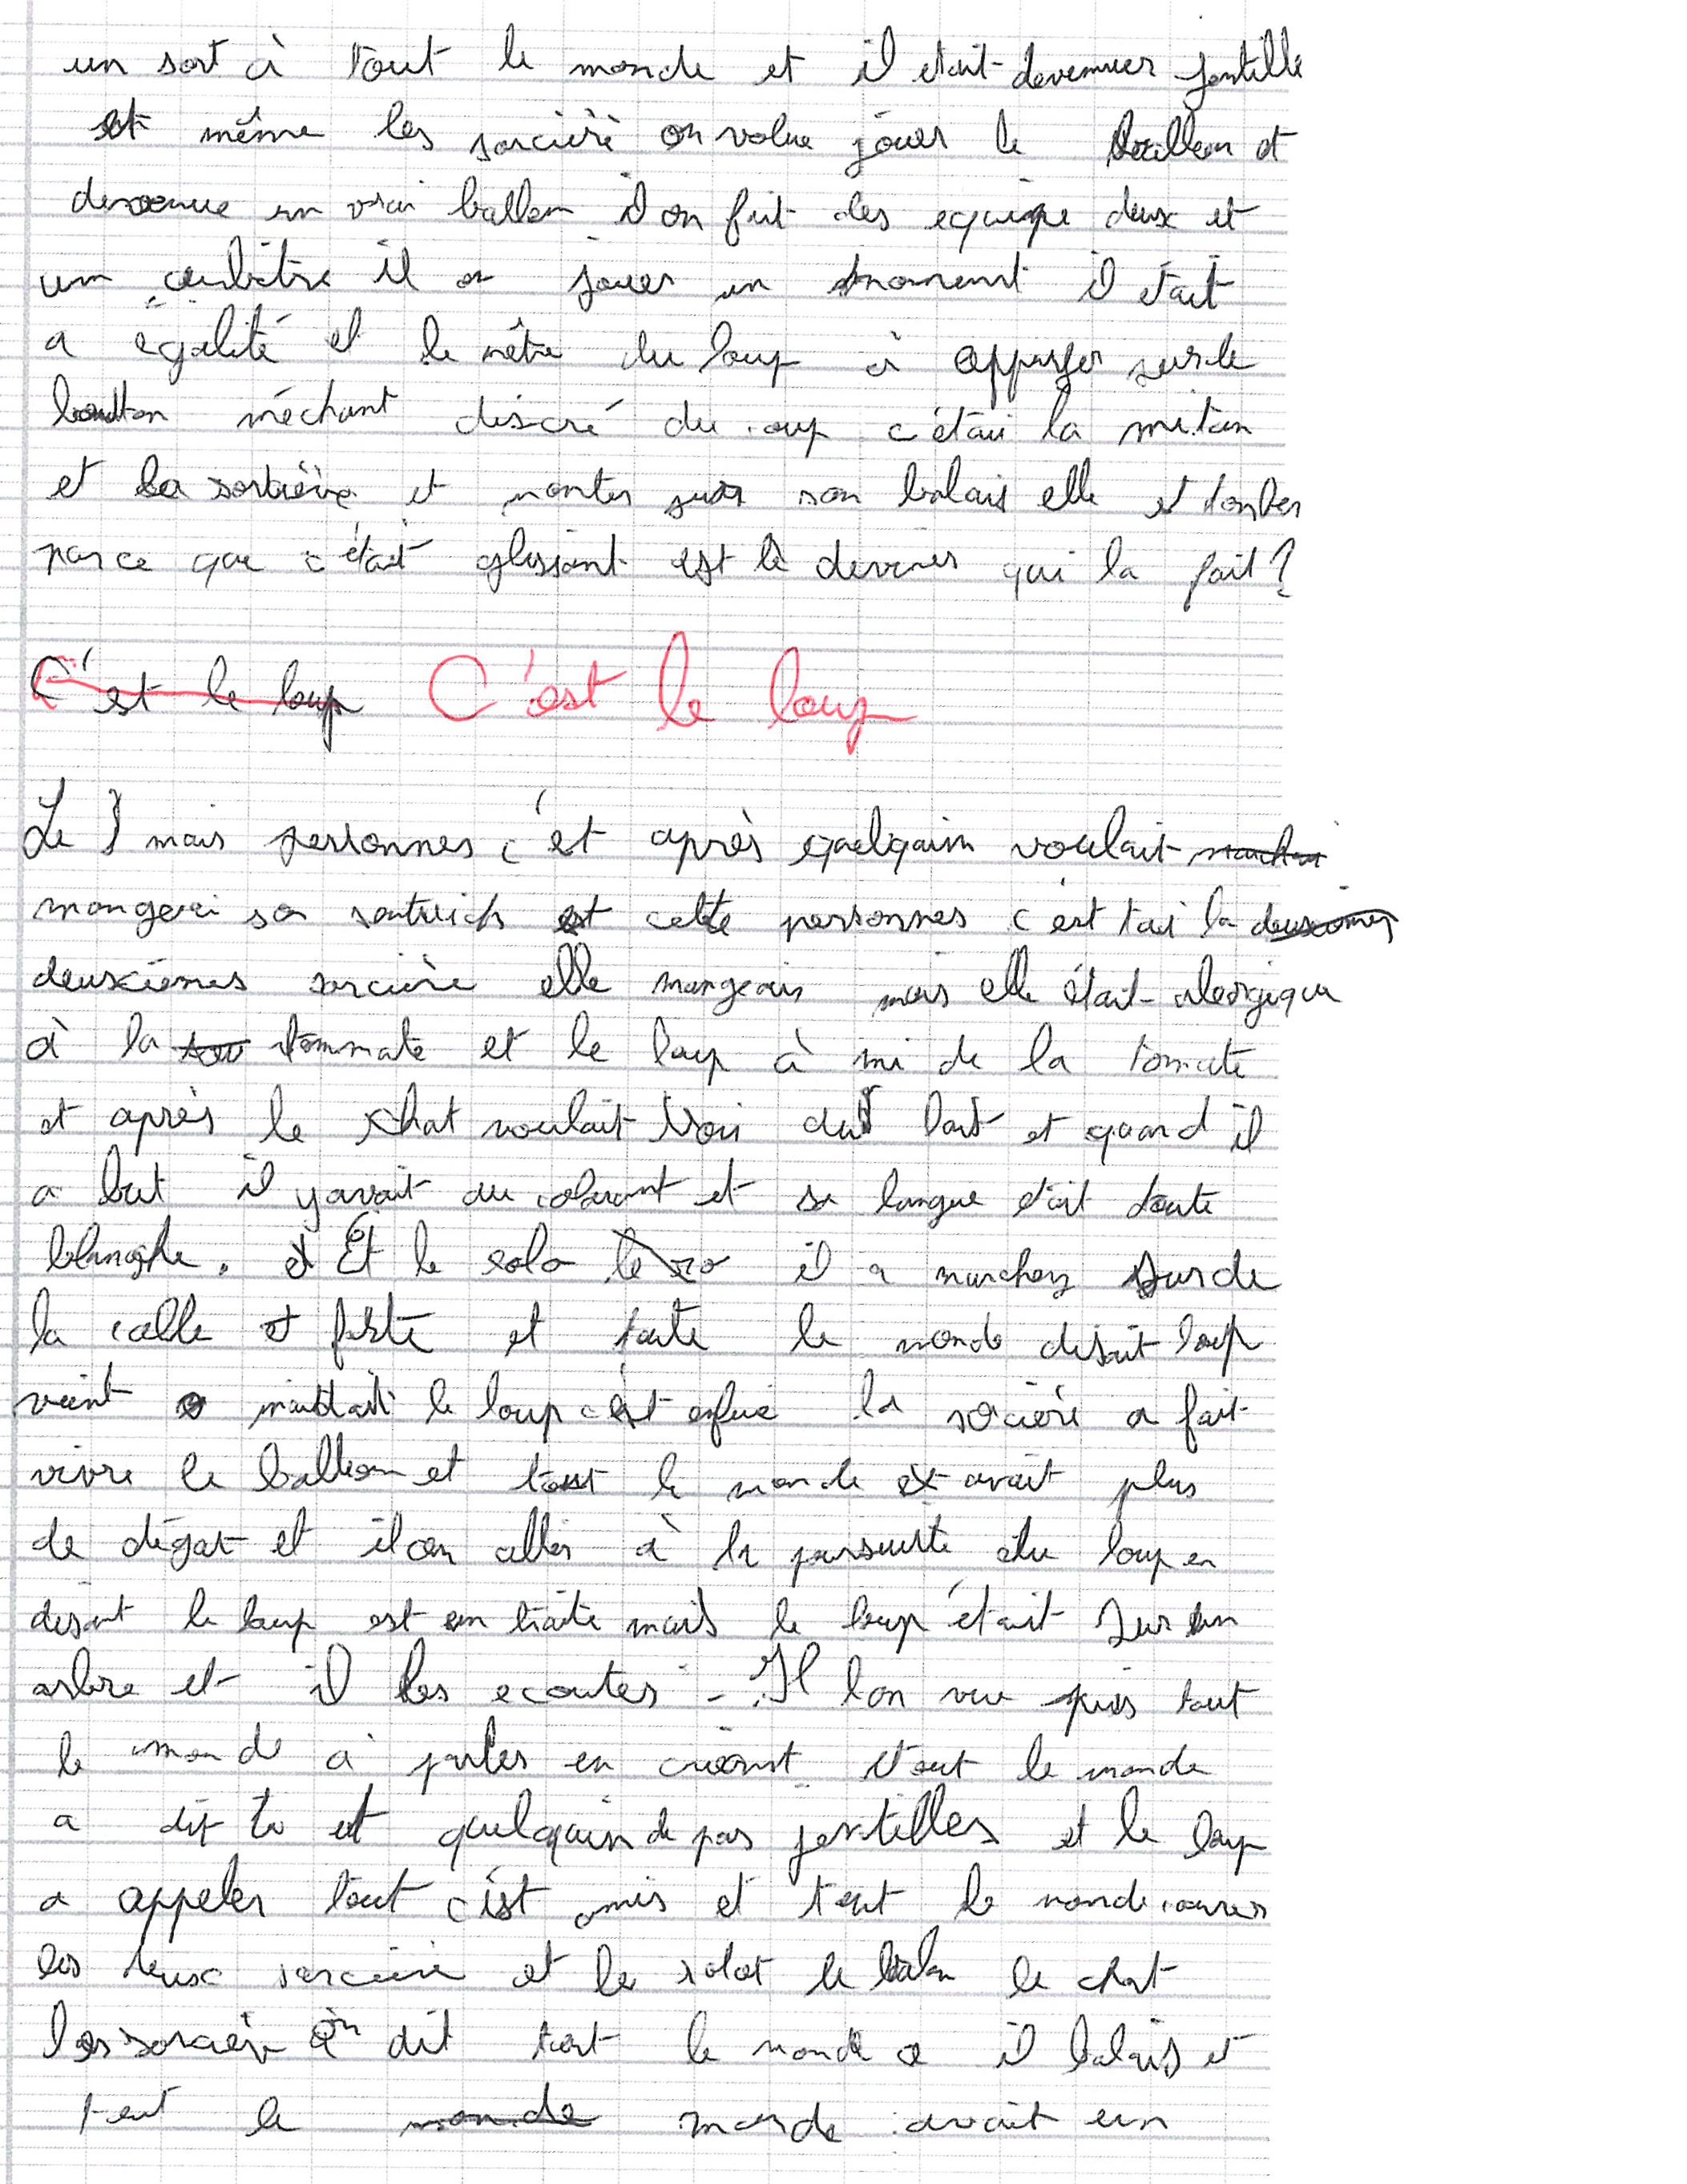 un sort à tout le monde et il etait devenuer gentille
et même les sorcièrè on volue jouer le ballon et
devenue un vrai ballon il on fait des equipe deux et
un arbitre il on jouer un moment il était
a égalité et le mêtre du loup à appuyer sur le
boutton méchant discré du coup c'étai la mi.tan
et la sorcière et monter sur son balais elle et tomber
parce que c'était glissant est le deviner qui la fait ?
C'est le loup C'est le loup
Le mais personnes c'ét après quelquain voulait
mangeri son sentwich et cette personnes c'est tai la
deuxcièmes sorcière elle mangeais mais elle était alergique
à la tommate et le loup à mi de la tomate
et après le chat voulait boir du lait et quand il
a but il yavait du colorant et sa langue était toute
blanche. Et le robo il a marchez sur de
la colle et et toute le monde disait loup
vient le loup c'ét enfuie la sorcièrè a fait
vivre le balleon et tout le monde avait plus
de dégat et il on aller à la poursuite du loup en
disant le loup est un traite mais le loup était sur un
arbre et il les ecoutes - Il lon vue puis tout
le monde à parler en criant tout le monde
a dit tu et quelquain de pas jentilles et le loup
a appeler tout c'ést amis et tout le monde courer
les deux sorcière et le robot le balon le chat
les sorcièr on dit tout le monde a il balais et
tout le monde avait un